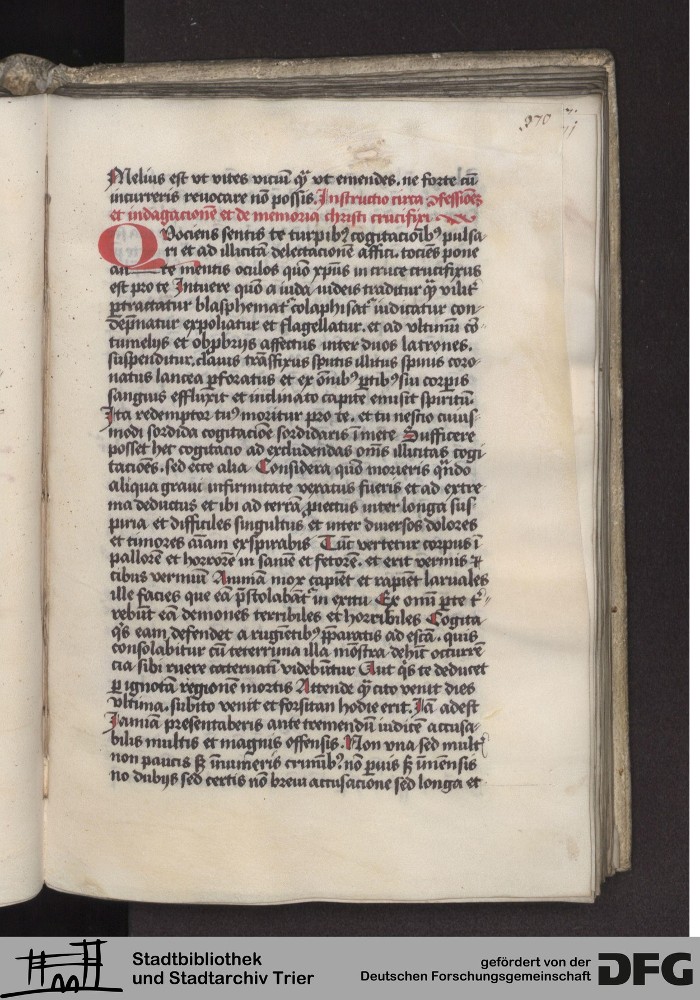 370
Melius est vt vites viciu͂ qͣ vt emendes. ne forte cu͂
incurreris reuocare no͂ possis. Instructio circa ꝯfessiones
et indagacione͂ et de memoria christi crucifixi
Quociens sentis te turpibꝰ cogitacio͂ibꝰ pulsa-
ri et ad illicita͂ delectacione͂ affici. tociens pone
an te mentis oculos quo͂ xp͂us in cruce crucifixus
est pro te Intuere quo͂ a iuda iudeis traditur qͣ vilit͛
ꝑtractatur blasphemat᷑ colaphisat᷑ iudicatur con-
de͂pnatur expoliatur et flagellatur. et ad vltimu͂ co͂
tumelijs et obp͂brijs affectus inter duos latrones.
suspenditur. clauis tra͂sfixus sputis illitus spinis coro-
natus lancea ꝑforatus et ex o͂nibꝰ ꝑtibꝰ sui corpis
sanguis effluxit et inclinato capite emisit spiritu͂.
Ita redemptor tuꝰ moritur pro te. et tu nescio cuius-
modi sordida cogitacio͂e sordidaris i͂ me͂te Sufficere
posset hec cogitacio ad excludendas om͂s illicitas cogi
tacio͂es. sed ecce alia Considera quo͂ morieris qn͂do
aliqua graui infirmitate vexatus fueris et ad extre
ma deductus et ibi ad terra͂ ꝓiectus inter longa sus
piria et difficiles singultus et inter diuersos dolores
et timores a͂i͂am exspirabis Tu͂c vertetur corpus i͂
pallore͂ et horrore͂ in sanie͂ et fetore͂. et erit vermis et
cibus vermiu͂ Anima͂ mox capie͂t et rapie͂t laruales
ille facies que ea͂ p͂stolaba͂t᷑ in exitu Ex omni ꝑte t͛-
rebu͂t ea͂ demones terribiles et horribiles Cogita
qͥs eam defendet a rugie͂tibꝰ p͂paratis ad esca͂. quis
consolabitur cu͂ teterrima illa mo͂stra dehi͂t occurre͂
cia sibi ruere cateruati͂ videbu͂tur Aut qͥs te deducet
ꝑ ignota͂ regione͂ mortis Attende qͣ cito venit dies
vltima. subito venit et forsitan hodie erit. Ia͂ adest
Ianiam presentaberis ante tremendu͂ iudice͂ accusa-
bilis multis et magnis offensis. Non vna sed mult͛
non paucis sꝫ i͂numeris crimi͂bꝰ. no͂ ꝑuis sꝫ i͂me͂nsis
no dubijs sed certis no͂ breui accusacione sed longa et
Stadtbibliothek
und Stadtarchiv Trier
gefördert von der
Deutschen Forschungsgemeinschaft
DFG